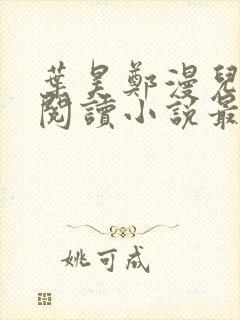 葉昊鄭漫兒
閱讀小說最
姚可成